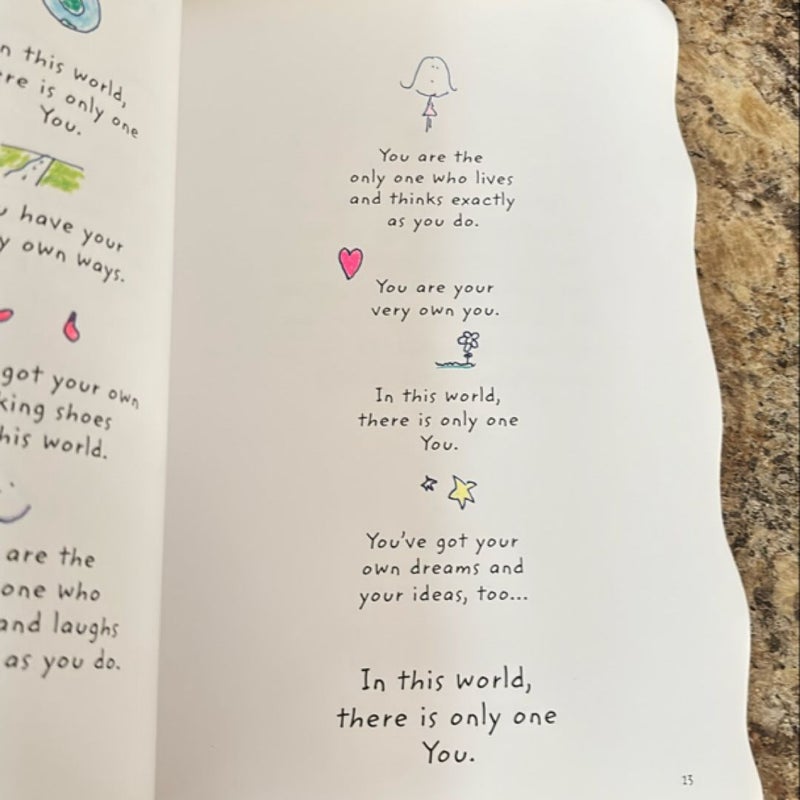 this world,
is only one
You.
have your
own ways.
got your own
shoes
world.
are the
one who
and laughs
as you do.
You are the
only one who lives
and thinks exactly
as you do.
You are your
very own you.
In this world,
there is only one
You.
You've got your
own dreams and
your ideas, too...
In this world,
there is only one
You.
13